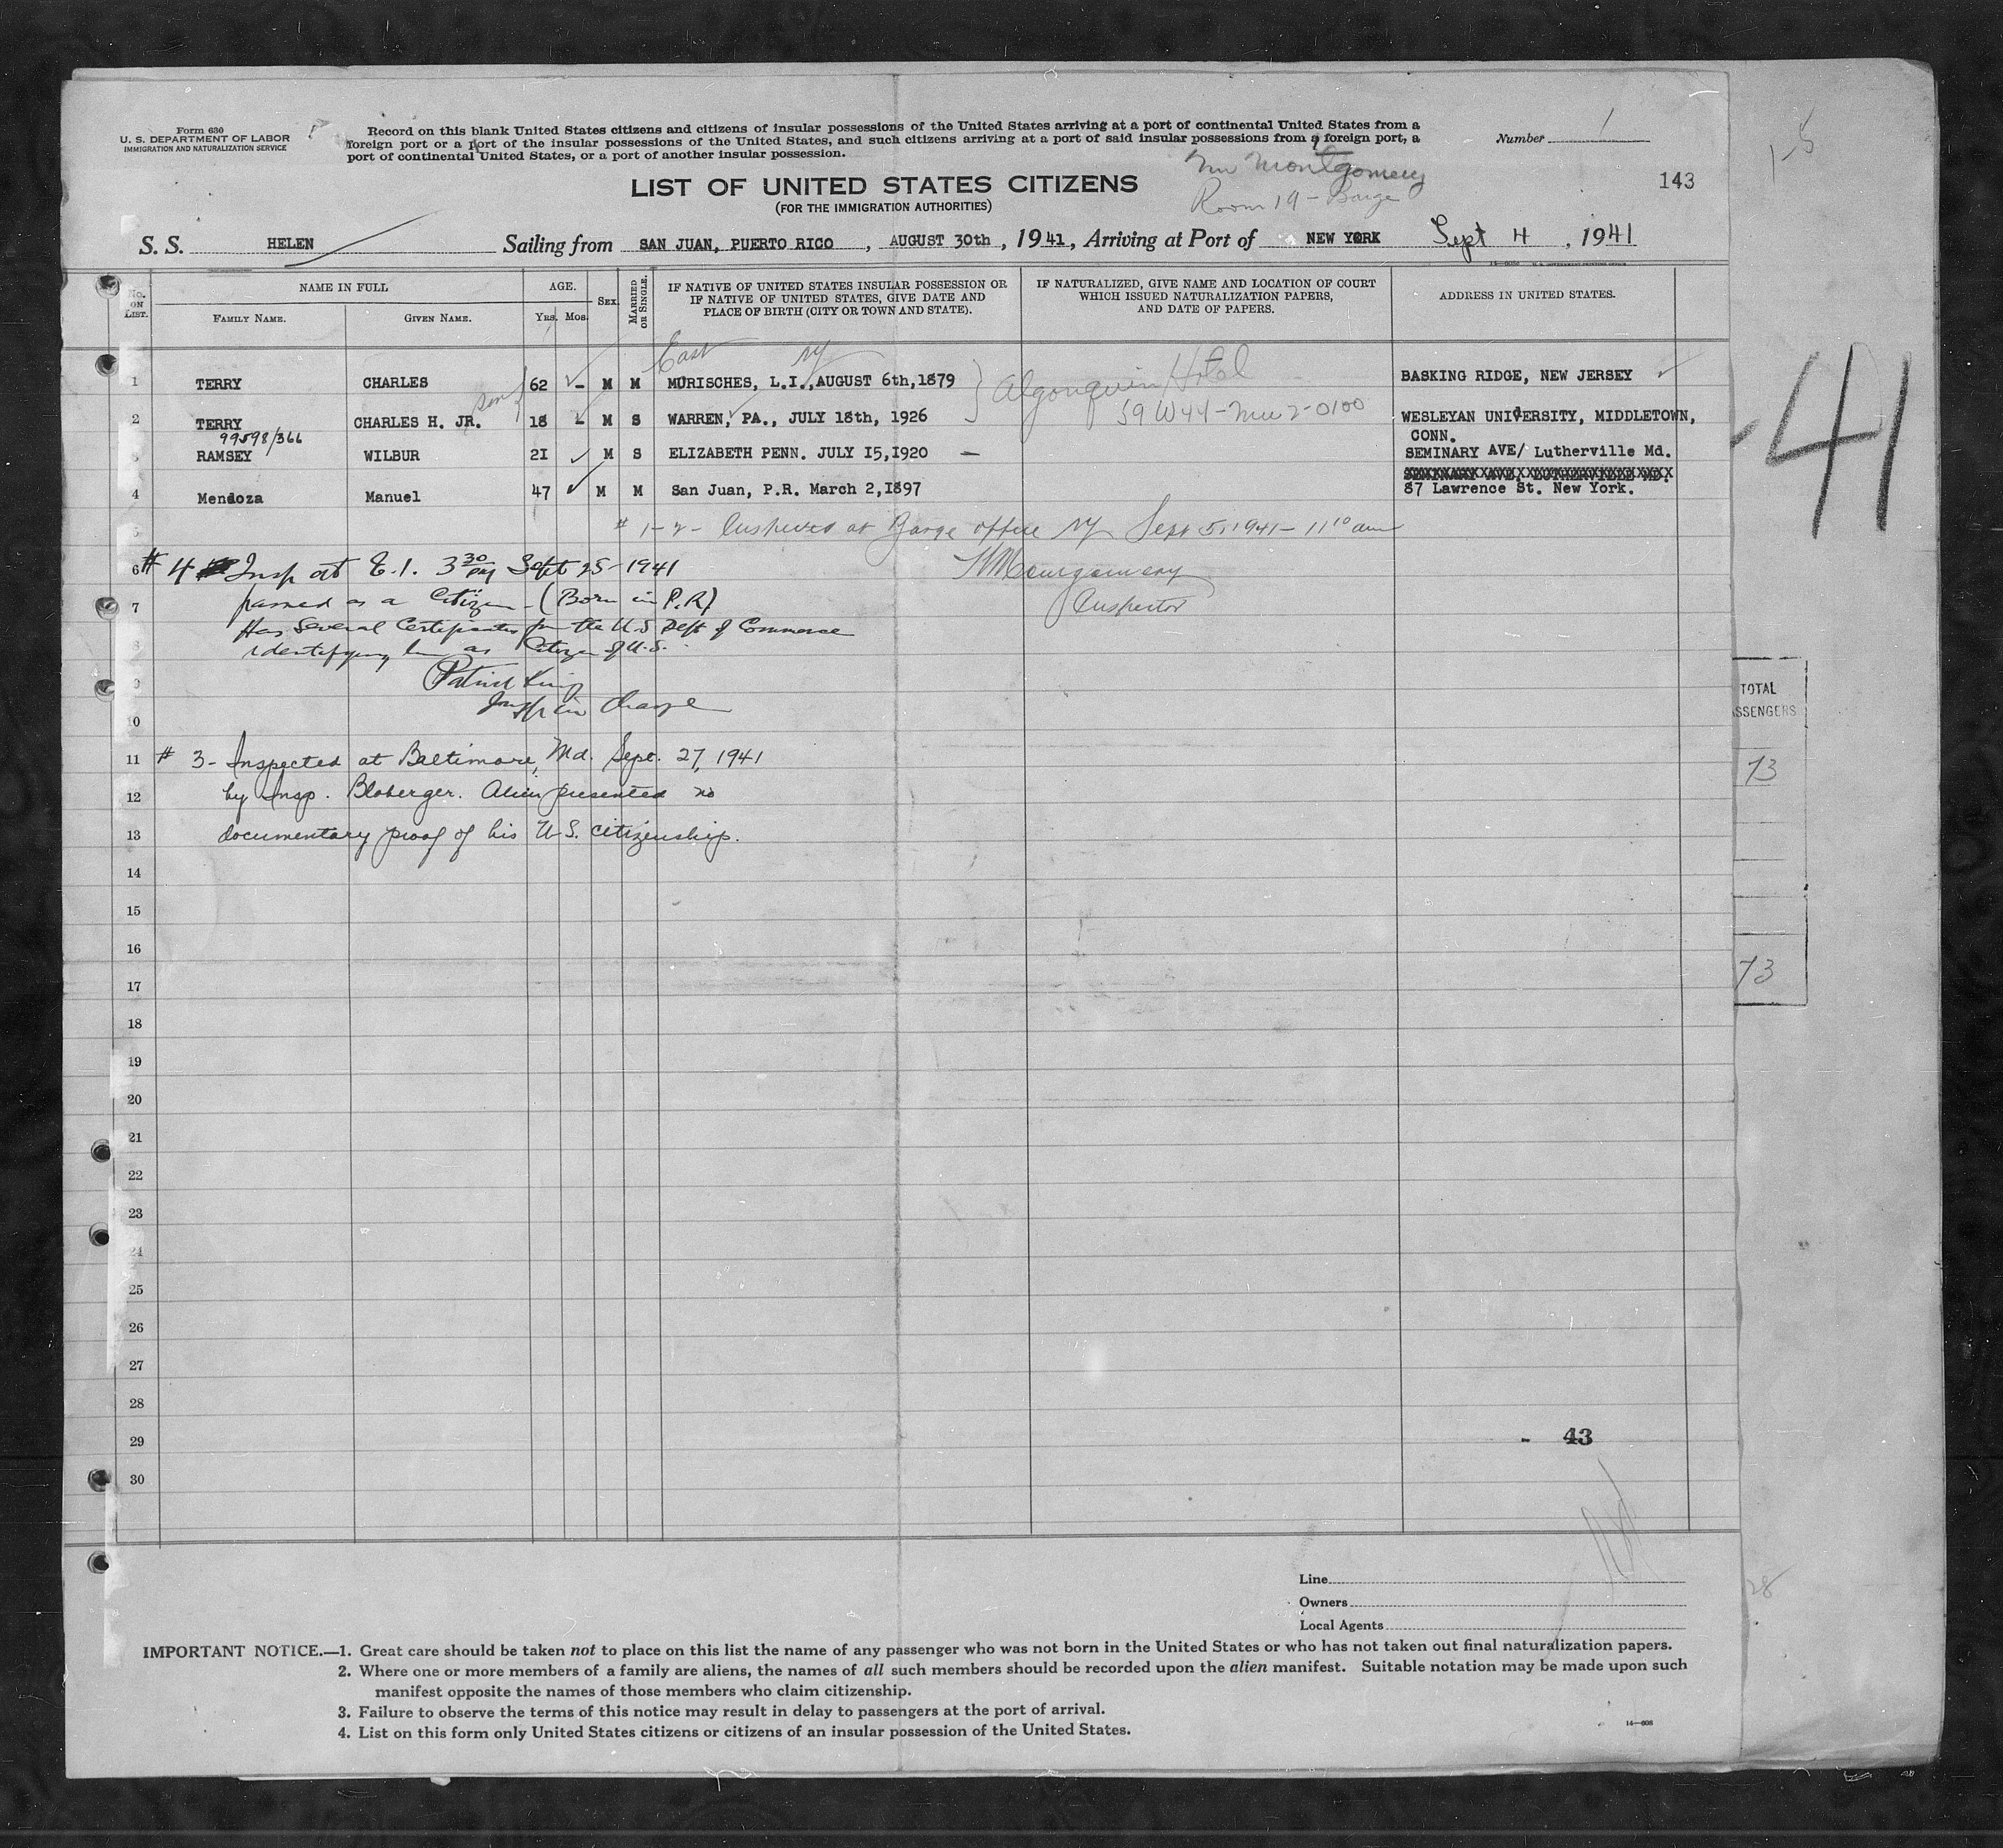 Form 630
U. S. DEPARTMENT OF LABOR
IMMIGRATION AND NATURALIZATION SERVICE
Record on this blank United States citizens and citizens of insular possessions of the United States arriving at a port of continental United States from a
foreign port or a port of the insular possessions of the United States, and such citizens arriving at a port of said insular possessions from a foreign port, a
port of continental United States, or a port of another insular possession.
Number 1
1-5
Montgomery
Room 19 - Barge
143
LIST OF UNITED STATES CITIZENS
(FOR THE IMMIGRATION AUTHORITIES)
S. S. HELEN Sailing from SAN JUAN, PUERTO RICO, AUGUST 30th, 1941, Arriving at Port of NEW YORK Sept 4, 1941
No. ON LIST. NAME IN FULL AGE. SEX MARRIED OR SINGLE. IF NATIVE OF UNITED STATES INSULAR POSSESSION OR IF NATIVE OF UNITED STATES, GIVE DATE AND PLACE OF BIRTH (CITY OR TOWN AND STATE). IF NATURALIZED, GIVE NAME AND LOCATION OF COURT WHICH ISSUED NATURALIZATION PAPERS, AND DATE OF PAPERS. ADDRESS IN UNITED STATES.
FAMILY NAME. GIVEN NAME. YRS. MOS.
East NY
1 TERRY CHARLES 62 – M M MORISCHES, L.I., AUGUST 6th, 1879 Algonquin Hotel BASKING RIDGE, NEW JERSEY
2 TERRY CHARLES H. JR. 18 M S WARREN, PA., JULY 18th, 1926 59 W 44 - Mu 2-0100 WESLEYAN UNIVERSITY, MIDDLETOWN,
CONN.
99598/366
3 RAMSEY WILBUR 2I M S ELIZABETH PENN. JULY I5,I920 — SEMINARY AVE/ Lutherville Md.
4 Mendoza Manuel 47 M M San Juan, P.R. March 2,I897 87 Lawrence St. New York.
41
5 # 1-2- Inspected at Barge office NY Sept 5, 1941 - 11 10 am
6 # 4 Insp at E.I. 3 30 PM Sept 25 - 1941
Montgomery
Inspector
7 passed as a Citizen - (Born in P.R)
Has Several Certificates from the U.S Dept of Commerce
8 identifying him as Citizen of U.S.
9 Patrick King
Insp in Charge
10
11 # 3- Inspected at Baltimore, Md. Sept. 27, 1941
12 by Insp. Bloberger. Alien presented no
13 documentary proof of his U.S. citizenship.
14
15
16
17
18
19
20
21
22
23
24
25
26
27
28
29
30
TOTAL
SSENGERS
73
73
- 43
28
Line
Owners
Local Agents
IMPORTANT NOTICE.—1. Great care should be taken not to place on this list the name of any passenger who was not born in the United States or who has not taken out final naturalization papers.
2. Where one or more members of a family are aliens, the names of all such members should be recorded upon the alien manifest. Suitable notation may be made upon such
manifest opposite the names of those members who claim citizenship.
3. Failure to observe the terms of this notice may result in delay to passengers at the port of arrival.
4. List on this form only United States citizens or citizens of an insular possession of the United States.
14—608